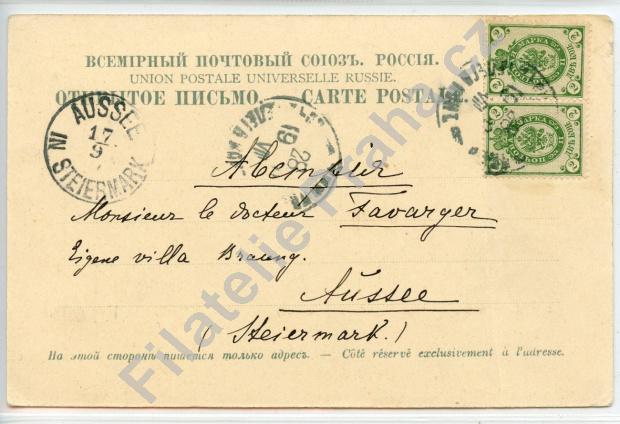 ВСЕМІРНЫЙ ПОЧТОВЫЙ СОЮЗЪ. РОССІЯ.
UNION POSTALE UNIVERSELLE RUSSIE.
ОТКРЫТОЕ ПИСЬМО. — CARTE POSTALE.
AUSSEE
17
9
IN STEIERMARK
28
VII
19
2
2
МАРКА
2
2
2
МАРКА
2
Monsieur le docteur Favarger
Eigene villa
Aussee
(Steiermark.)
На этой сторонѣ пишется только адресъ. — Côté réservé exclusivement à l'adresse.
Filatelie Praha.cz